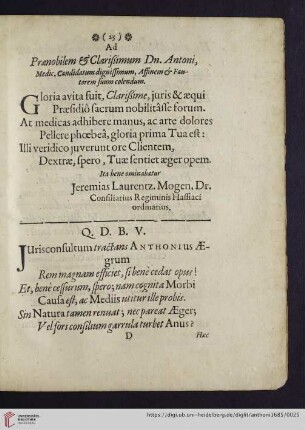 ❋ (25) ❋
Ad
Prænobilem & Clarißimum Dn. Antoni,
Medic. Candidatum dignissimum, Affinem & Fau-
torem suum colendum.
Gloria avita fuit, Clarißime, juris & æqui
Præsidiô sacrum nobilitâsse forum.
At medicas adhibere manus, ac arte dolores
Pellere phœbeâ, gloria prima Tua est:
Illi veridico juverunt ore Clientem,
Dextræ, spero, Tuæ sentiet æger opem.
Ita bene ominabatur
Jeremias Laurentz. Mogen, Dr.
Consiliarius Regiminis Hassiaci
ordinarius.
Q. D. B. V.
JUrisconsultum tractans ANTHONIUS Æ-
grum
Rem magnam efficiet, si benè cedat opus!
Et, benè cessurum, spero; nam cognita Morbi
Causa est, ac Mediis utitur ille probis.
Sin Natura tamen renuat; nec pareat Æger;
Vel fors consilium garrula turbet Anus?
D
Hac
https://digi.ub.uni-heidelberg.de/diglit/anthoni1685/0025
UNIVERSITÄTS-
BIBLIOTHEK
HEIDELBERG